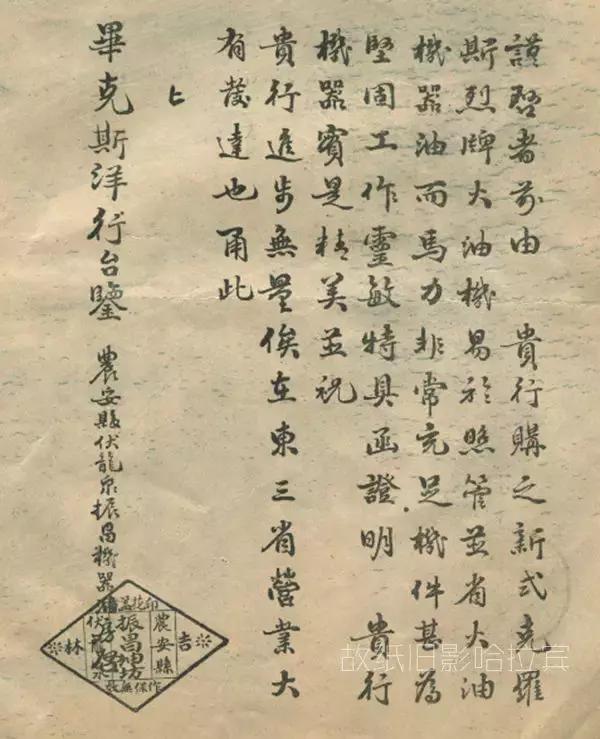 謹啓者前由 貴行購之新式克羅
斯烈牌大油機易於照管並省火油
機器油而馬力非常充足機件甚為
堅固工作靈敏特具函證明 貴行
機器實是精美並祝
貴行進步無量俟在東三省營業大
有發達也甬此
上
畢克斯洋行台鑒
農安縣伏龍泉振昌機器
吉林
農安縣
振昌油坊
印花蓋
作保無效
故纸旧影哈拉宾